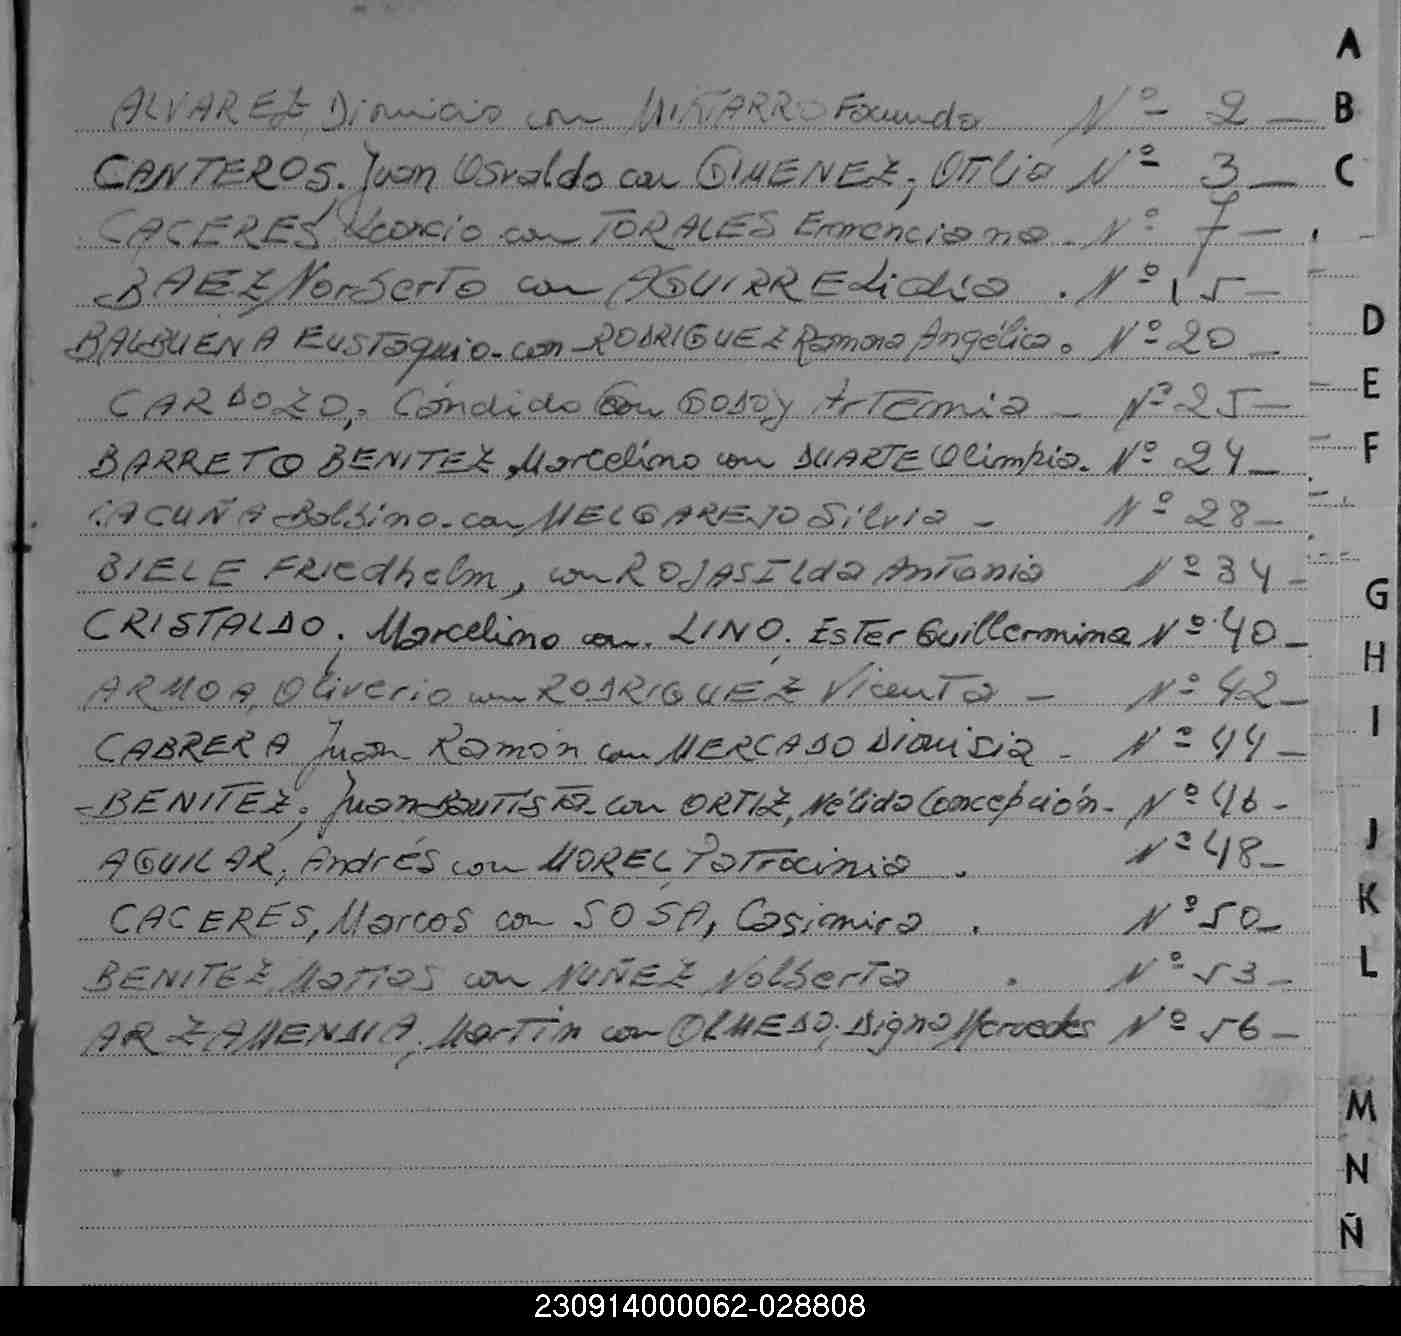 ALVAREZ, Dionicio con Facunda Nº 2 —
CANTEROS, Juan Osvaldo con GIMENEZ, Otilia Nº 3 —
CACERES con TORALES Ermenciana - Nº 7 —
BAEZ, Norberto con AGUIRRE Lidia . Nº 15 —
BALBUENA Eustaquio - con RODRIGUEZ Ramona Angélica. Nº 20 —
CARDOZO, Cándido con GODOY Artemia — Nº 25 —
BARRETO BENITEZ, Marcelino con DUARTE Olimpia. Nº 24 —
Balbino - con MELGAREJO Silvia - Nº 28 —
BIELE Friedhelm, con ROJAS Ilda Antonia Nº 34 -
CRISTALDO, Marcelino con LINO, Ester Guillermina Nº 40 —
ARMOA, Oliverio con RODRIGUEZ Vicenta — Nº 42 —
CABRERA Juan Ramón con MERCADO Dionisia - Nº 44 —
BENITEZ, Juan Bautista - con ORTIZ, Nélida Concepción - Nº 46 -
AGUILAR, Andrés con MOREL Patrocinia . Nº 48 —
CACERES, Marcos con SOSA, Casimira . Nº 50 —
BENITEZ Matias con NUÑEZ Nolberta . Nº 53 -
ARZAMENDIA, Martin con OLMEDO, Digna Mercedes Nº 56 —
A
B
C
D
E
F
G
H
I
J
K
L
M
N
Ñ
230914000062-028808